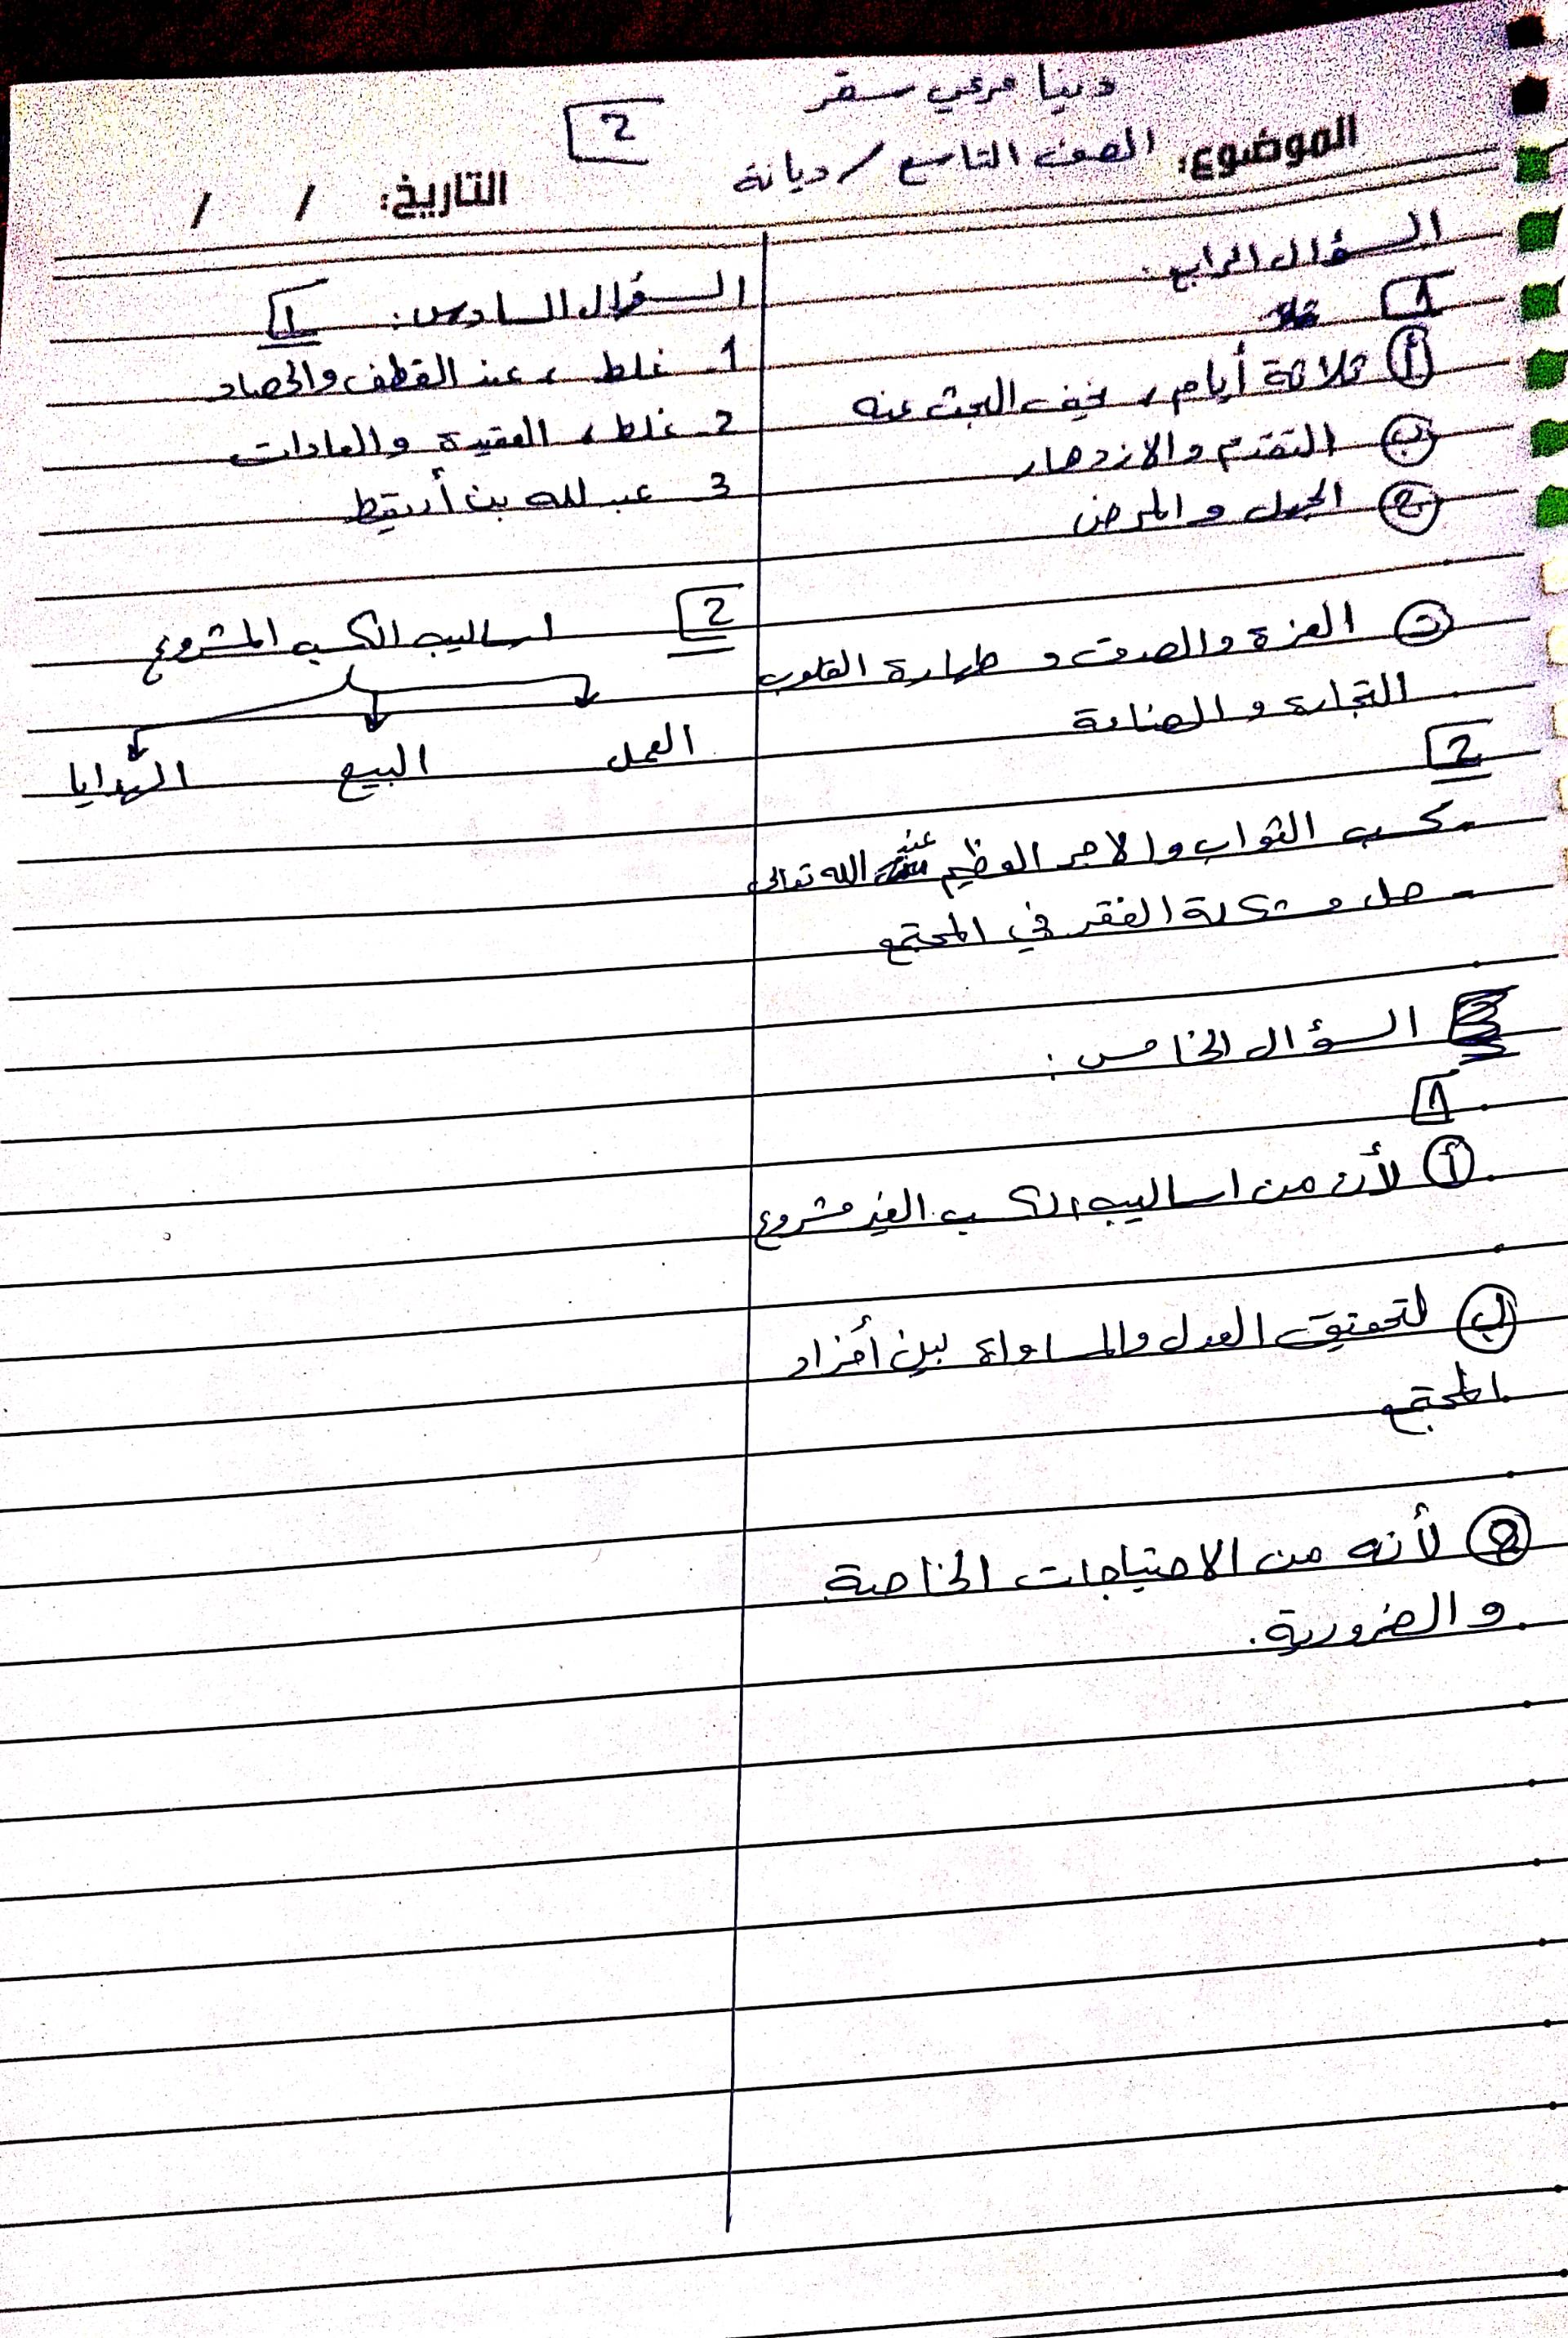 دنيا مرعي سقر
2
الموضوع: الصف التاسع / ديانة
التاريخ: / /
السؤال الرابع:
1
أ ثلاثة أيام، يخيف البحث عنه
ب التقدم والازدهار
ج الجهل والمرض
د العزة والصدق و طهارة القلوب
التجارة والصناعة
2
- كسب الثواب والاجر العظيم عند الله تعالى
- حل مشكلة الفقر في المجتمع
السؤال الخامس:
1
أ لأن من اساليب الكسب الغير مشروع
ب لتحقيق العدل والمساواة بين أفراد
المجتمع
ج لأنه من الاحتياجات الخاصة
والضرورية.
السؤال السادس: 1
1- غلط، عند القطف والحصاد
2- غلط، العقيدة والعادات
3- عبدلله بن أريقط
2 اساليب الكسب المشروع
العمل البيع الهدايا